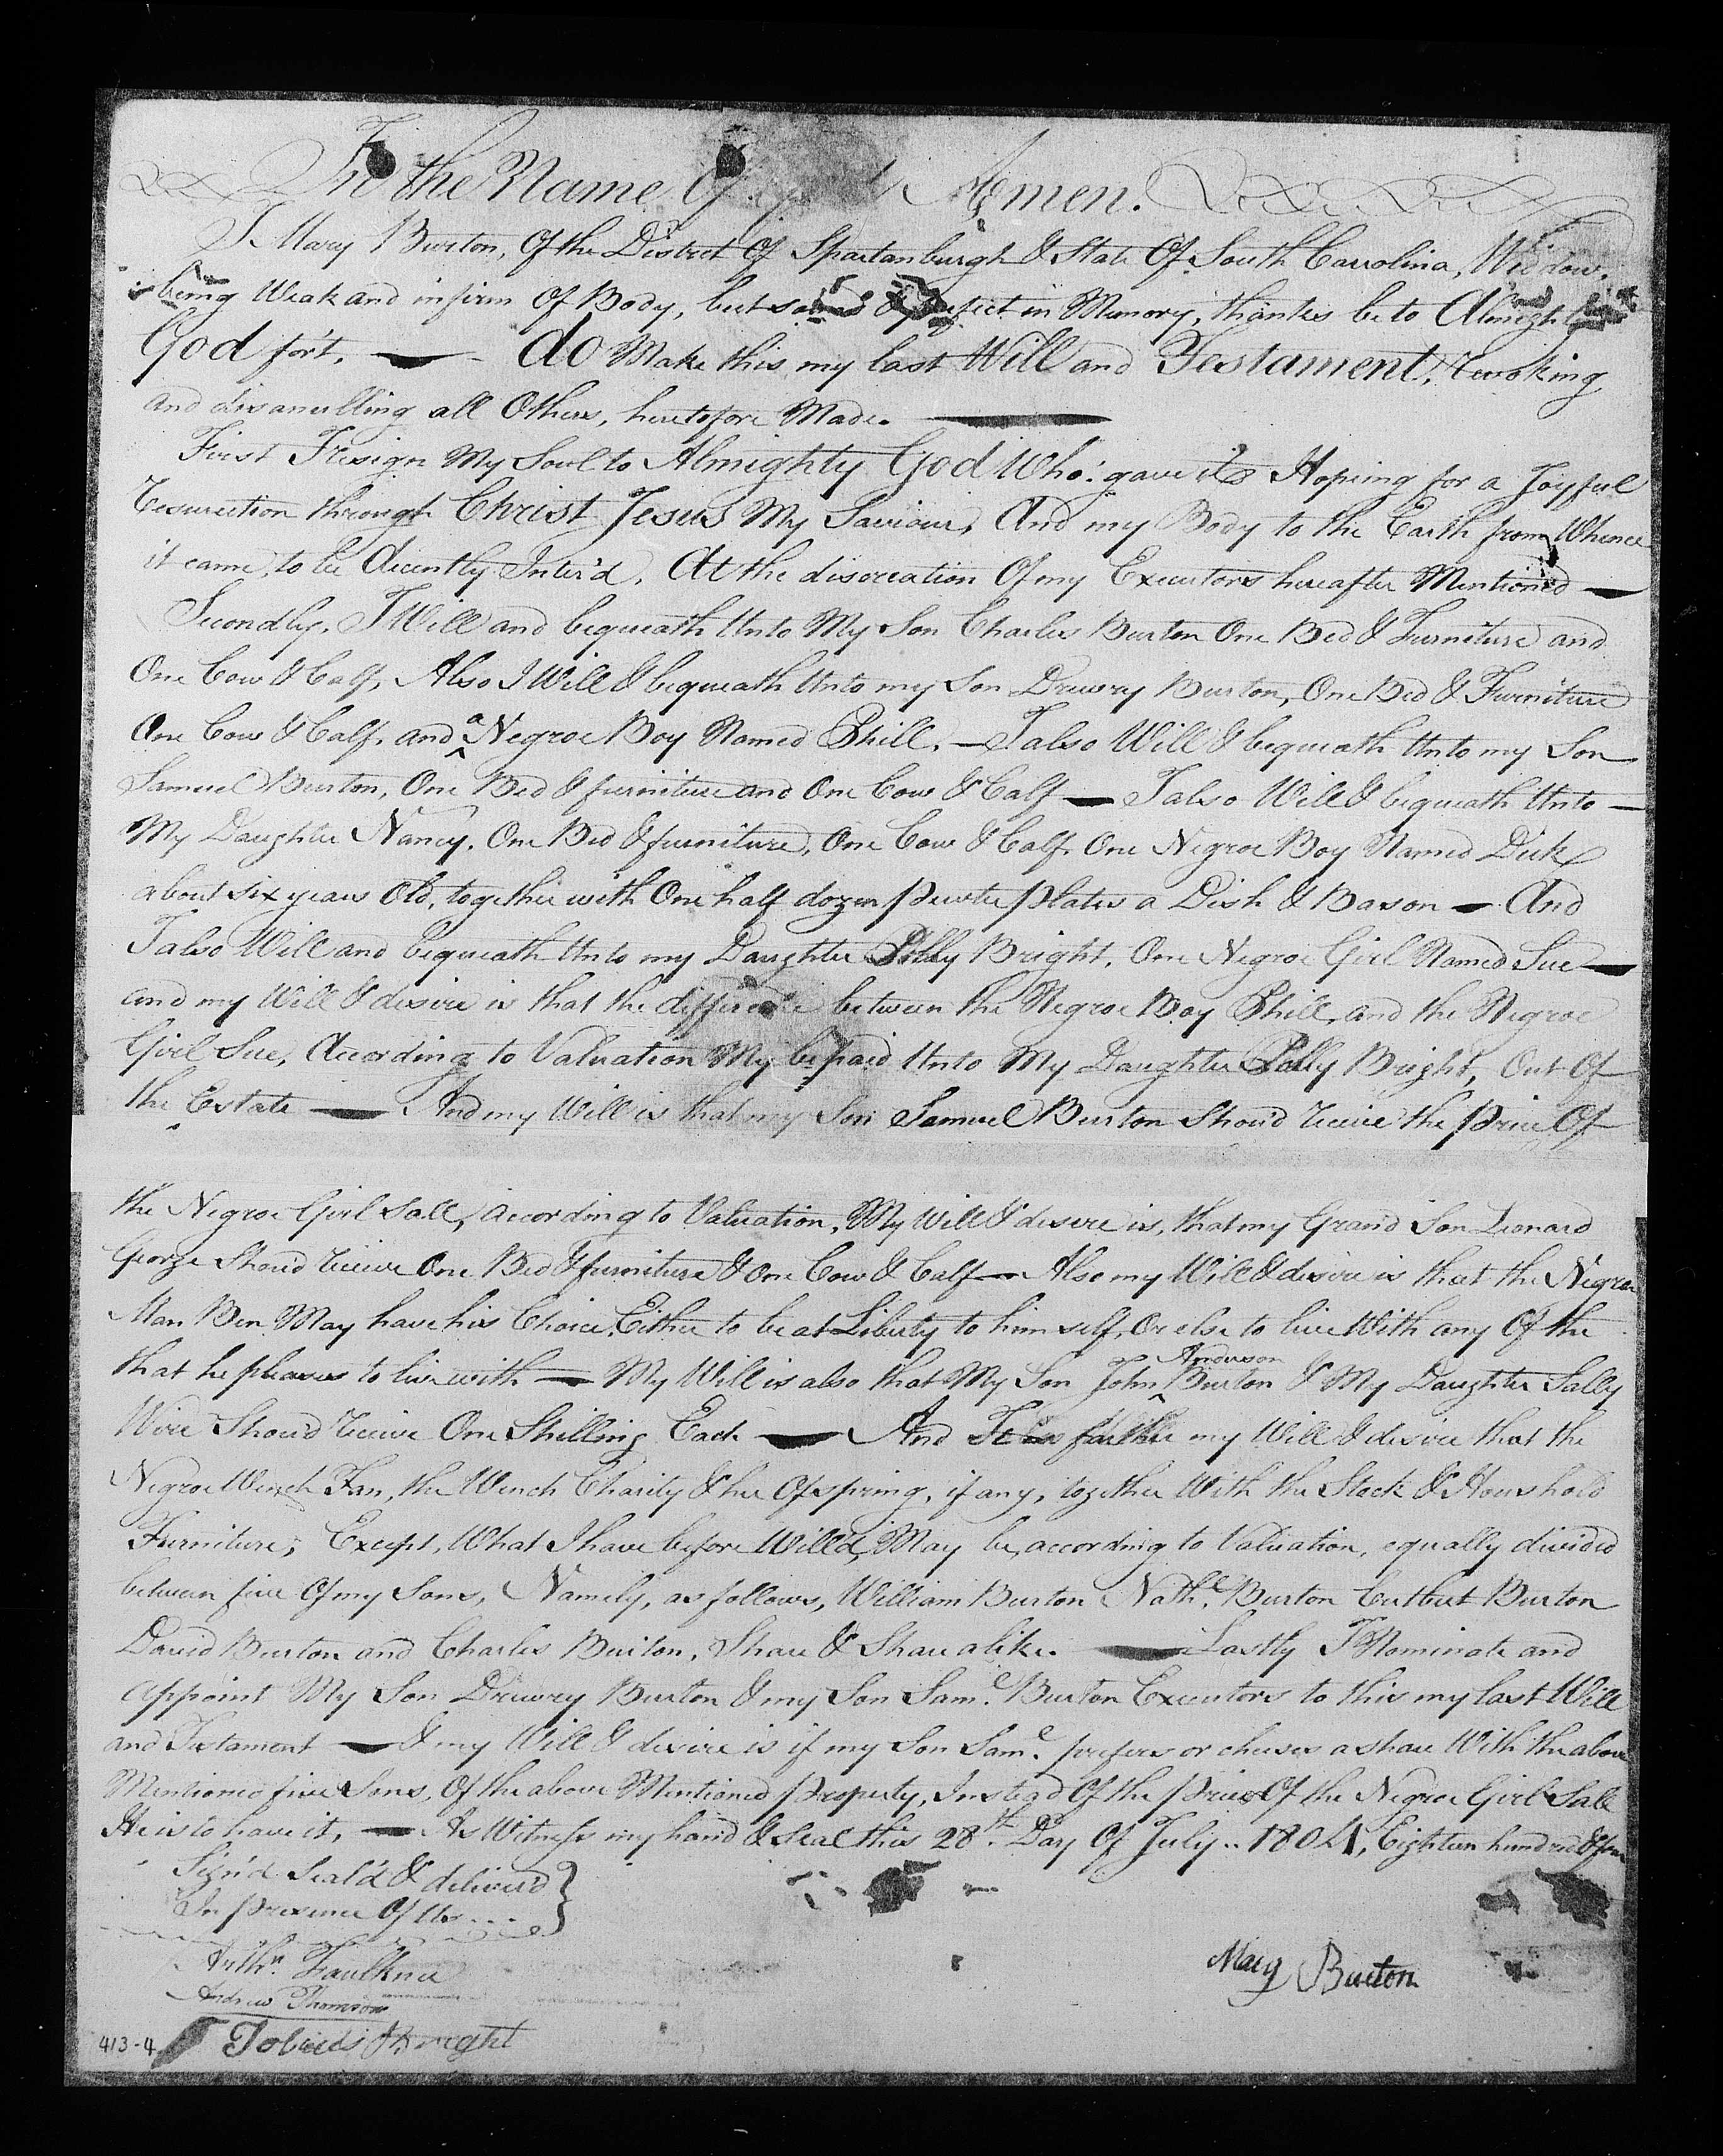 In the Name Amen.
I Mary Burton, Of the District Of Spartanburgh & State Of South Carrolina, Widdow,
being Weak and infirm Of Body, but sound & perfect in Memory, thanks be to Almighty
God for't, — do Make this my last Will and Testament, revoking
and disanulling all Others, heretofore Made. —
First I resign My Soul to Almighty God Who: gave it Hoping for a Joyful
Resurection through Christ Jesus My Saviour, And my Body to the Earth from Whence
it came, to be decently Inter'd, At the discreation Of my Executors hereafter Mentioned —
Secondly, I Will and bequeath Unto My Son Charles Burton One Bed & Furniture and
One Cow & Calf, Also I Will & bequeath Unto my Son Druwry Burton, One Bed & Furniture
One Cow & Calf, and a Negroe Boy Named Phill, — I also Will & bequeath Unto my Son
Samuel Burton, One Bed & furniture and One Cow & Calf — I also Will & bequeath Unto —
My Daughter Nancy, One Bed & furniture, One Cow & Calf, One Negroe Boy Named Dick
about six years Old, together with One half dozen pewter plates a Dish & Bason — And
I also Will and bequeath Unto my Daughter Polly Bright, One Negroe Girl Named Sue —
and my Will & desire is that the difference between the Negroe Boy Phill, and the Negroe
Girl Sue, According to Valuation My be paid Unto My Daughter Polly Bright, Out Of
the Estate — And my Will is that my Son Samuel Burton Shou'd receive the price Of
the Negroe Girl Sall, according to Valuation, My Will & desire is, that my Grand Son Leonard
George Shou'd receive One Bed & furniture & One Cow & Calf — Also my Will & desire is that the Negroe
Man Ben May have his Choice, Either to be at Liberty to himself, Or else to live With any Of the
that he pleases to live with — My Will is also that My Son John Anderson Burton & My Daughter Sally
Wire Shou'd receive One Shilling Each — And It is farther my Will & desire that the
Negroe Wench Fan, the Wench Charity & her Ofspring, if any, together With the Stock & Houshold
Furniture, Except, What I have before Will'd, May be, according to Valuation, equally divided
between five Of my Sons, Namely, as follows, William Burton Nathl. Burton Cutbert Burton
David Burton and Charles Burton, Share & Share alike. — Lastly I Nominate and
appoint My Son Druwry Burton & my Son Saml. Burton Executors to this my last Will
and Testament — & my Will & desire is if my Son Saml. prefers or chuses a share With the above
Mentioned five Sons, Of the above Mentioned property, Instead Of the price Of the Negroe Girl Sall
He is to have it, — As Witness my hand & Seal this 28th. Day Of July .. 1804, Eighteen hundred & four
Sign'd Seal'd & deliver'd
In presence Of Us ...
Arthr. Faulkner
Mary Burton
Andrew Thomson
Tobias Bright
413-4